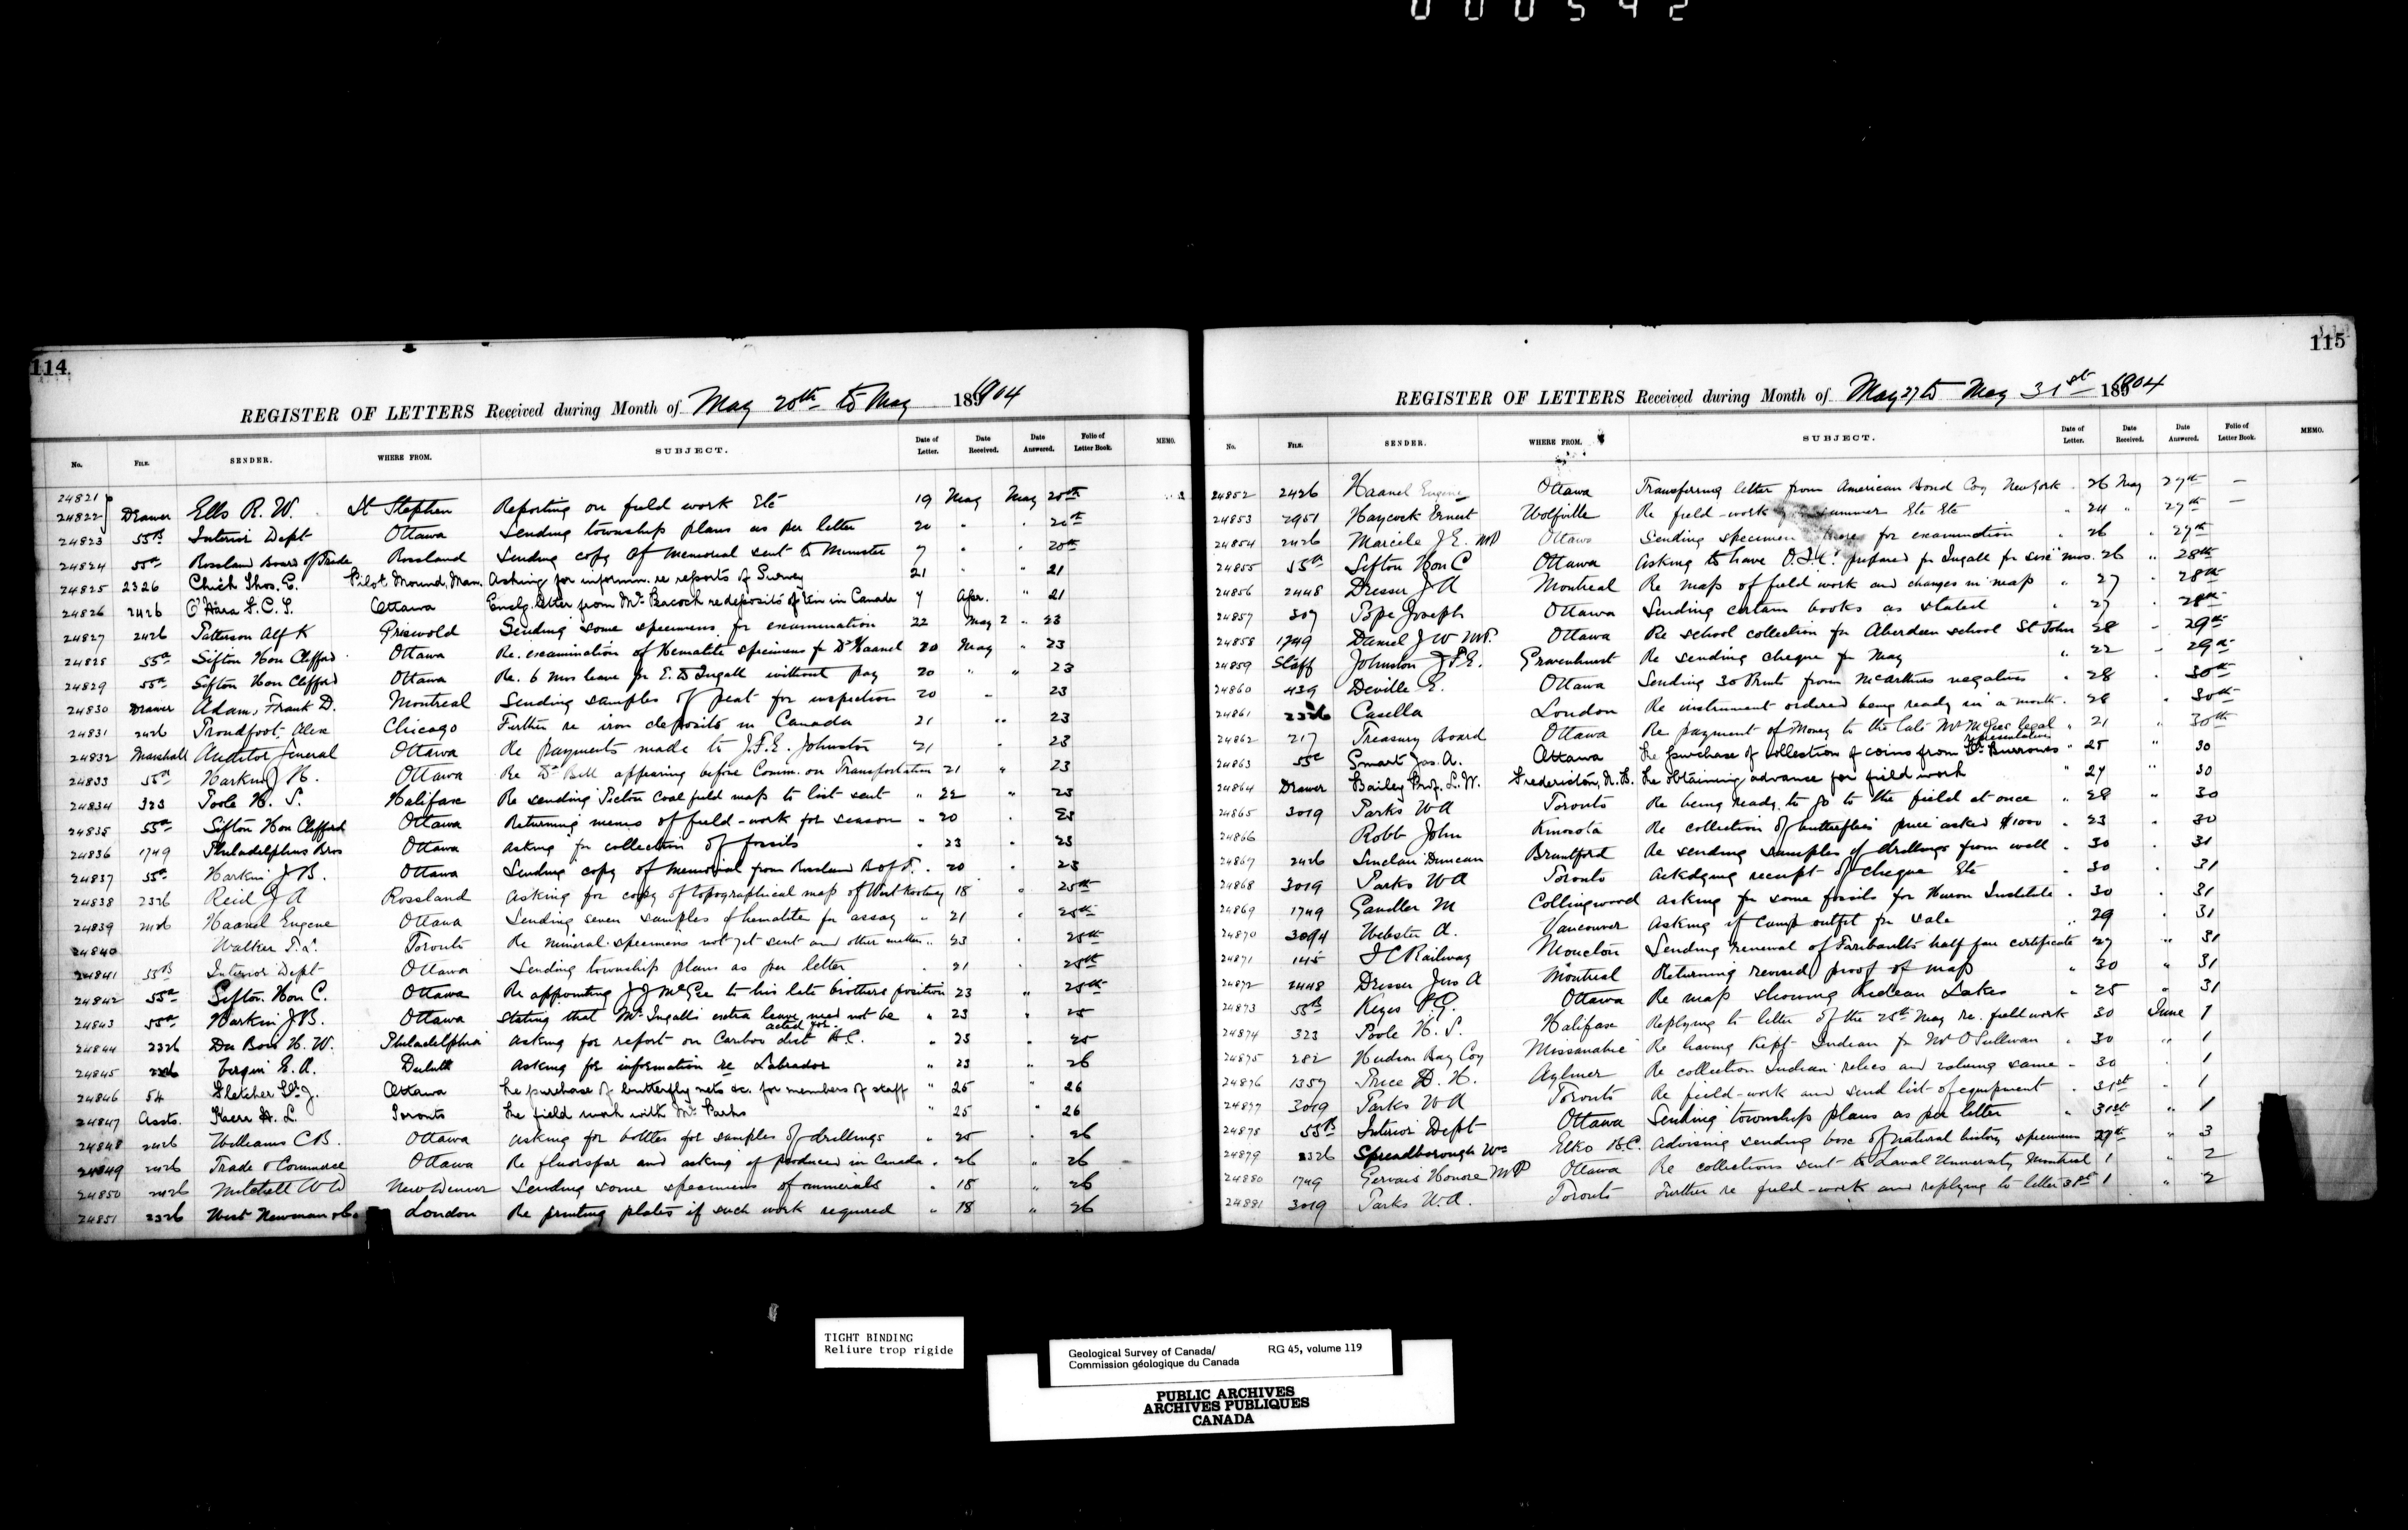 000542
114
REGISTER OF LETTERS Received during Month of May 20th to May 1904
No. FILE. SENDER. WHERE FROM. SUBJECT. Date of Letter. Date Received. Date Answered. Folio of Letter Book. MEMO.
24821
24822 Drawer Ells R. W. St Stephen Reporting on field work Etc 19 May May 20th
24823 55B Interior Dept Ottawa Sending township plans as per letter 20 " " 20th
24824 55a Rossland Board of Trade Rossland Sending copy of Memorial sent to Minister 7 " " 20th
24825 2326 Chick Thos. E. Pilot Mound, Man. Asking for informn. re reports of Survey 21 " " 21
24826 2426 O'Hara F. C. T. Ottawa Enclg. letter from Mr. Peacock re deposits of tin in Canada 7 Apr. " 21
24827 2426 Patterson Alf K Griswold Sending some specimens for examination 22 May 2 " 23
24828 55a Sifton Hon Clifford Ottawa Re. examination of Hematite specimens for Dr Haanel 20 May " 23
24829 55a Sifton Hon Clifford Ottawa Re. 6 mos leave for E. D Ingall without pay 20 " " 23
24830 Drawer Adams, Frank D. Montreal Sending samples of peat for inspection 20 " 23
24831 2426 Proudfoot Alex Chicago Further re iron deposits in Canada 21 " 23
24832 Marshall Auditor General Ottawa Re payments made to J. F. E. Johnston 21 " 23
24833 55a Harkin J B. Ottawa Re Dr Bell appearing before Comm. on Transportation 21 " 23
24834 323 Poole H. S. Halifax Re sending Pictou Coal field map to list sent " 22 " 23
24835 55a Sifton Hon Clifford Ottawa Returning memo of field-work for season " 20 " 23
24836 1749 Philadelphus Bros Ottawa Asking for collection of fossils " 23 " 23
24837 55a Harkin J B. Ottawa Sending copy of Memorial from Rossland B of T. " 20 " 23
24838 2326 Reid J A Rossland Asking for copy of topographical map of West Kootenay 18 " 25th
24839 2426 Haanel Eugene Ottawa Sending seven samples of hematite for assay " 21 " 25th
24840 Walker T. L. Toronto Re mineral specimens not yet sent and other matters " 23 " 25th
24841 55B Interior Dept Ottawa Sending township plans as per letter " 21 " 25th
24842 55a Sifton. Hon C. Ottawa Re appointing J J McGee to his late brothers position 23 " 25th
24843 55a Harkin J B. Ottawa Stating that Mr. Ingalls extra leave need not be acted for. " 23 " 25
24844 2326 Du Bois H. W. Philadelphia Asking for report on Cariboo dist B.C. " 23 " 25
24845 2326 E. A. Duluth Asking for information re Labrador " 23 " 26
24846 54 Fletcher Dr. J. Ottawa Re purchase of butterfly nets &c. for members of staff " 25 " 26
24847 Assts. Kerr H. L. Toronto Re field work with Mr. Parks " 25 " 26
24848 2426 Williams C B. Ottawa Asking for bottles for samples of drillings " 25 " 26
24849 2426 Trade & Commerce Ottawa Re fluorspar and asking if produced in Canada " 26 " 26
24850 2426 Mitchell W D New Denver Sending some specimens of minerals " 18 " 26
24851 2326 West Newman & Co London Re printing plates if such work required " 18 " 26
115
REGISTER OF LETTERS Received during Month of May 27 to May 31st 1904
No. FILE. SENDER. WHERE FROM. SUBJECT. Date of Letter. Date Received. Date Answered. Folio of Letter Book. MEMO.
24852 2426 Haanel Eugene Ottawa Transferring letter from American Bond Coy New York " 26 May 27th —
24853 2951 Haycock Ernest Wolfville Re field-work summer Etc Etc " 24 " 27th —
24854 2426 Marcile J E. MP Ottawa Sending specimen for examination " 26 " 27th
24855 55a Sifton Hon C Ottawa Asking to have O.I.C. prepared for Ingall for six mos. 26 " 28th
24856 2448 Dresser J A Montreal Re map of field work and changes in map " 27 " 28th
24857 307 Pope Joseph Ottawa Sending certain books as stated " 27 " 28th
24858 1749 Daniel J W MP. Ottawa Re school collection for Aberdeen school St John 28 " 29th
24859 Staff Johnston J. F. E. Gravenhurst Re sending cheque for May " 22 " 29th
24860 439 Deville E. Ottawa Sending 30 Prints from McArthurs negatives " 28 " 30th
24861 2326 Casella London Re instrument ordered being ready in a month " 28 " 30th
24862 217 Treasury Board Ottawa Re payment of Money to the late Mr McGees legal representatives " 21 " 30th
24863 55c Smart Jas. A. Ottawa Re purchase of collection of coins from Burrows " 25 " 30
24864 Drawer Bailey Prof. L. W. Fredericton, N. B. Re obtaining advance for field work " 27 " 30
24865 3019 Parks W A Toronto Re being ready to go to the field at once " 28 " 30
24866 Robb John Kinosota Re collection of butterflies price asked $1000 " 23 " 30
24867 2426 Sinclair Duncan Brantford Re sending samples of drillings from well " 30 " 31
24868 3019 Parks W A Toronto Ackdging receipt of cheque Etc " 30 " 31
24869 1749 Gandler M Collingwood Asking for some fossils for Huron Institute " 30 " 31
24870 3094 Webster A. Vancouver Asking if camp outfit for sale " 29 " 31
24871 145 I C Railway Moncton Sending renewal of Faribaults half fare certificate 27 " 31
24872 2448 Dresser Jno A Montreal Returning revised proof of map " 30 " 31
24873 55B Keyes P. G. Ottawa Re map showing Rideau Lakes " 25 " 31
24874 323 Poole H. S. Halifax Replying to letter of the 25th May re. field work 30 June 1
24875 282 Hudson Bay Coy Missanabie Re having kept Indian for Mr O'Sullivan " 30 " 1
24876 1359 Price D. H. Aylmer Re collection Indian relics and valuing same " 30 " 1
24877 3019 Parks W A Toronto Re field-work and send list of equipment " 31st " 1
24878 55B Interior Dept Ottawa Sending township plans as per letter " 31st " 1
24879 2326 Spreadborough Wm Elko B.C. Advising sending box of natural history specimens 27th " 3
24880 1749 Gervais Honore MP Ottawa Re collections sent to Laval University Montreal 1 " 2
24881 3019 Parks W. A. Toronto Further re field-work and replying to letter 1 " 2
TIGHT BINDING
Reliure trop rigide
Geological Survey of Canada/ RG 45, volume 119
Commission géologique du Canada
PUBLIC ARCHIVES
ARCHIVES PUBLIQUES
CANADA